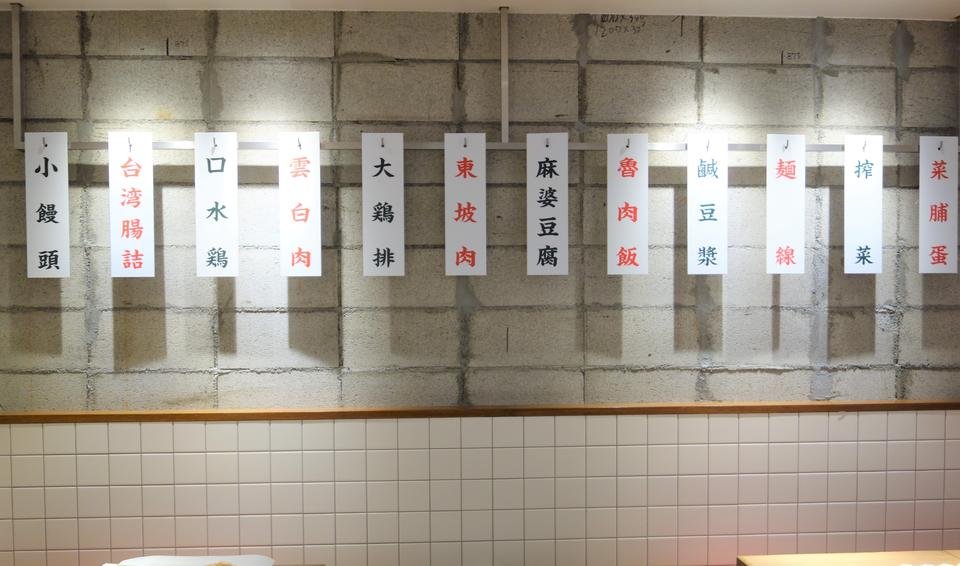 小饅頭
台湾腸詰
口水鶏
雲白肉
大鶏排
東坡肉
麻婆豆腐
魯肉飯
鹹豆漿
麺線
搾菜
菜脯蛋